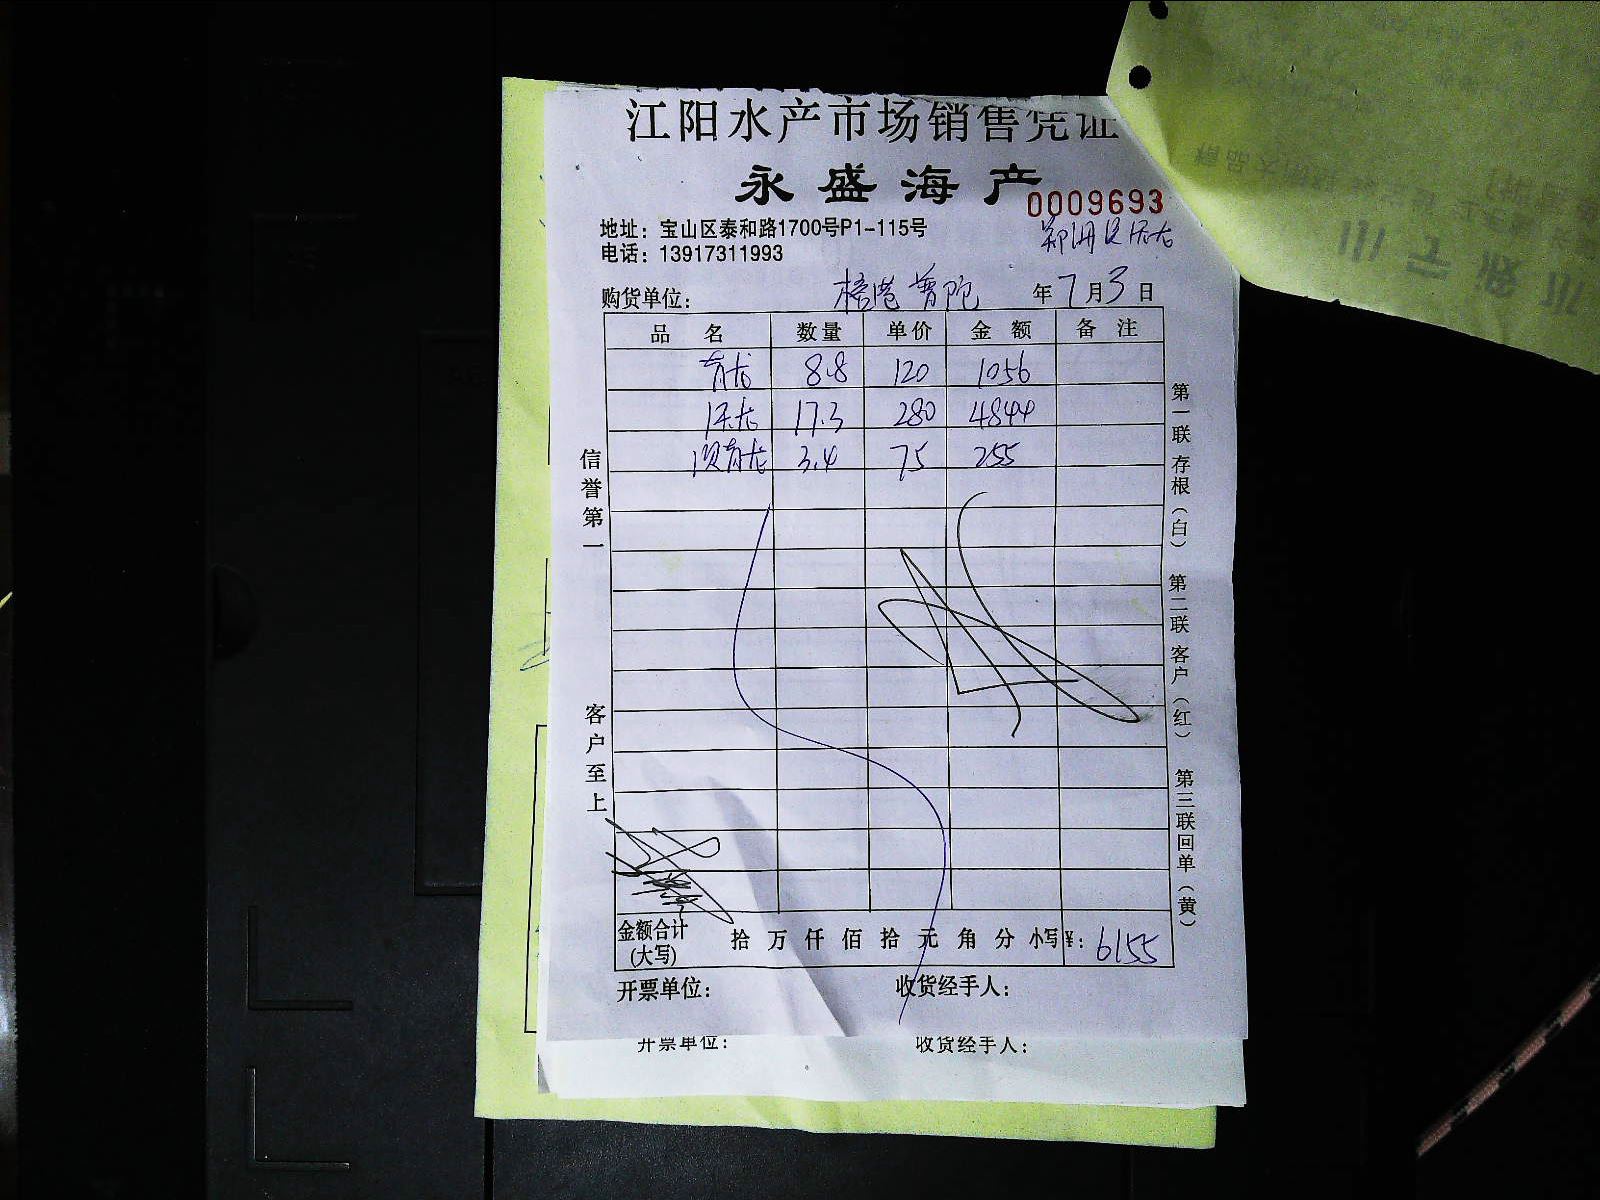 江阳水产市场销售凭证
永盛海产
0009693
地址：宝山区泰和路1700号P1-115号
电话：13917311993
购货单位： 普陀 年7月3日
品名 数量 单价 金额 备注
青龙 8.8 120 1056
17.3 280 4844
青龙 3.4 75 255
信誉第一
客户至上
第一联存根（白） 第二联客户（红） 第三联回单（黄）
金额合计(大写) 拾万仟佰拾元角分 小写¥：6155
开票单位： 收货经手人：
开票单位： 收货经手人：